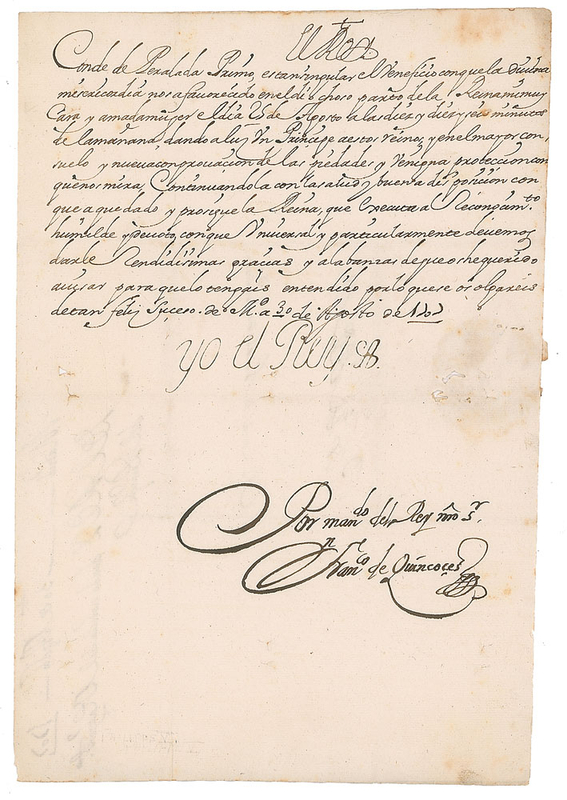 El Rey
Conde de Peralada Primo, es tan singular el Veneficio con que la divina
misericordia nos a favorecido en el dichoso parto de la Reina mi muy
Cara y amada mujer el dia 25 de Agosto a las diez y diez y seis minutos
de la mañana, dando a luz Vn Principe a estos Reinos, y en el mayor con
suelo y nueva conprouacion de las piedades y Venigna proteccion con
que nos mira, Continuandola con la salud y buena disposicion con
que a quedado y prosigue la Reina, que executa a Reconozim.to
humilde y deuoto, con que Vniuersal y particularmente deuemos
darle Rendidisimas gracias y alabanzas de que os he querido
auisar para que lo tengais entendido por lo que se os olgareis
de tan feliz suceso. de M.d a 30 de Agosto de 1707
yo el Rey
Por man.do del Rey nro s.r
D.n Fran.co de Quincoces